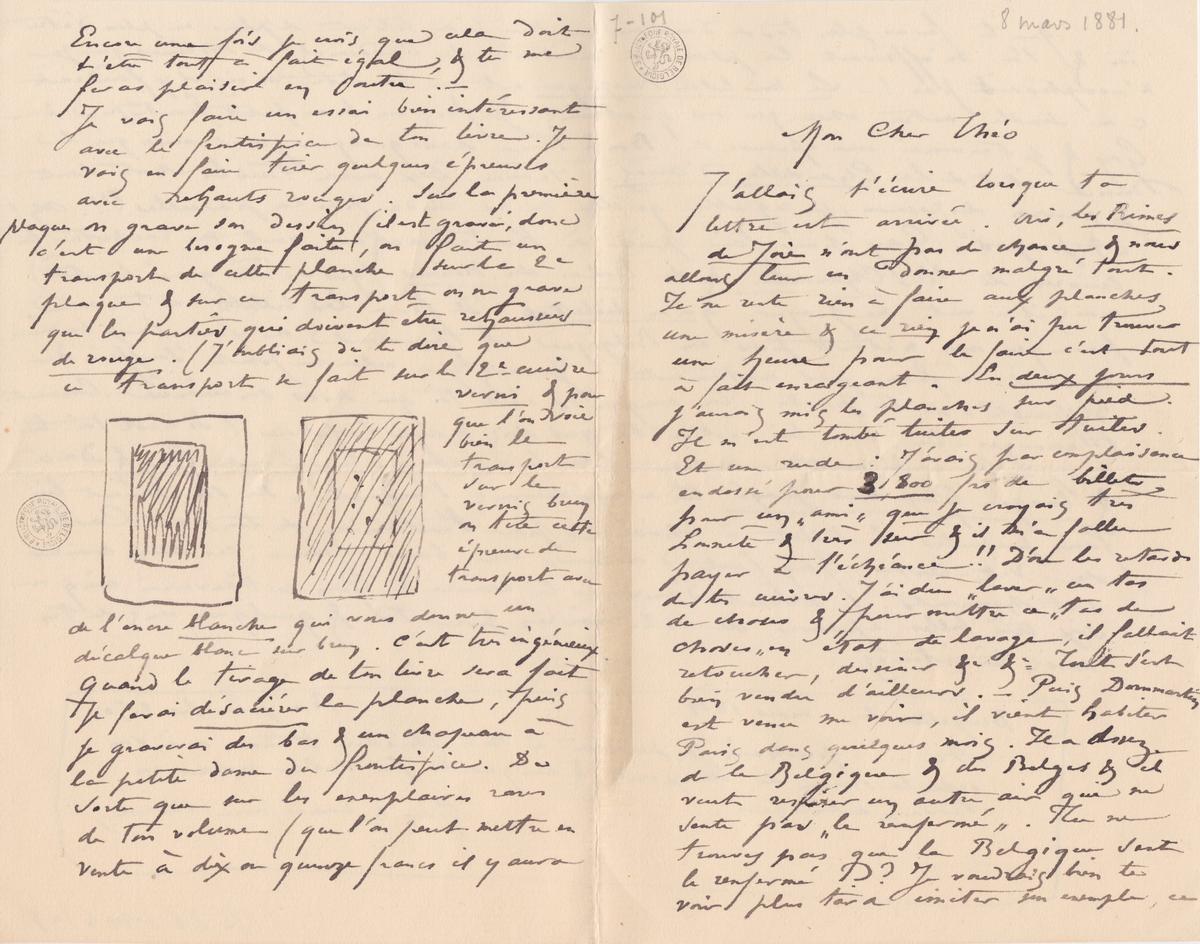 7-101
8 mars 1881.
Mon Cher Théo
J'allais t'écrire lorsque ta
lettre est arrivée. Oui, les Rimes
de Joie n'ont pas de chance & nous
allons leur en donner malgré tout.
Il ne reste rien à faire aux planches,
une misère & ce rien je n'ai pu trouver
une heure pour le faire c'est tout
à fait enrageant. En deux jours
j'aurais mis les planches sur pied.
Il m'est tombé tuiles sur tuiles.
Et une rude : J'avais par complaisance
endossé pour 3800 frs de billets
pour un „ami„ que je croyais très
honnête & très sûr & il m'a fallu
payer à l'échéance !! D'où les retards
de tes cuivres. J'ai dû „laver„ un tas
de choses & pour mettre ce „tas de
choses„ en état de lavage, il fallait
retoucher, dessiner &c &c Tout s'est
bien vendu d'ailleurs. — Puis Dommartin
est venu me voir, il vient habiter
Paris dans quelques mois. Il a assez
de la Belgique & des Belges & il
veut respirer un autre air que ne
sente pas „le renfermé„. Tu ne
trouves pas que la Belgique sent
le renfermé ?? Je voudrais bien te
voir plus tard imiter son exemple, ce
Encore une fois je crois que cela doit
t'être tout à fait égal, & tu me
feras plaisir en outre. —
Je vais faire un essai bien intéressant
avec le frontispice de ton livre. Je
vais en faire tirer quelques épreuves
avec rehauts rouges. Sur la première
plaque on grave son dessin (il est gravé, donc
c'est une besogne faite), on fait un
transport de cette planche sur la 2e
plaque & sur ce transport on ne grave
que les parties qui doivent être rehaussées
de rouge. (J'oubliais de te dire que
ce transport se fait sur le 2e cuivre
verni & pour
que l'on voie
bien le
transport
sur le
vernis brun
on tire cette
épreuve de
transport avec
de l'encre blanche qui vous donne un
décalque blanc sur brun. C'est très ingénieux.
Quand le tirage de ton livre sera fait
Je ferai désaciérer la planche, puis
je graverai des bas & un chapeau à
la petite dame du frontispice. De
sorte que sur les exemplaires rares
de ton volume (que l'on peut mettre en
vente à dix ou quinze francs il y aura